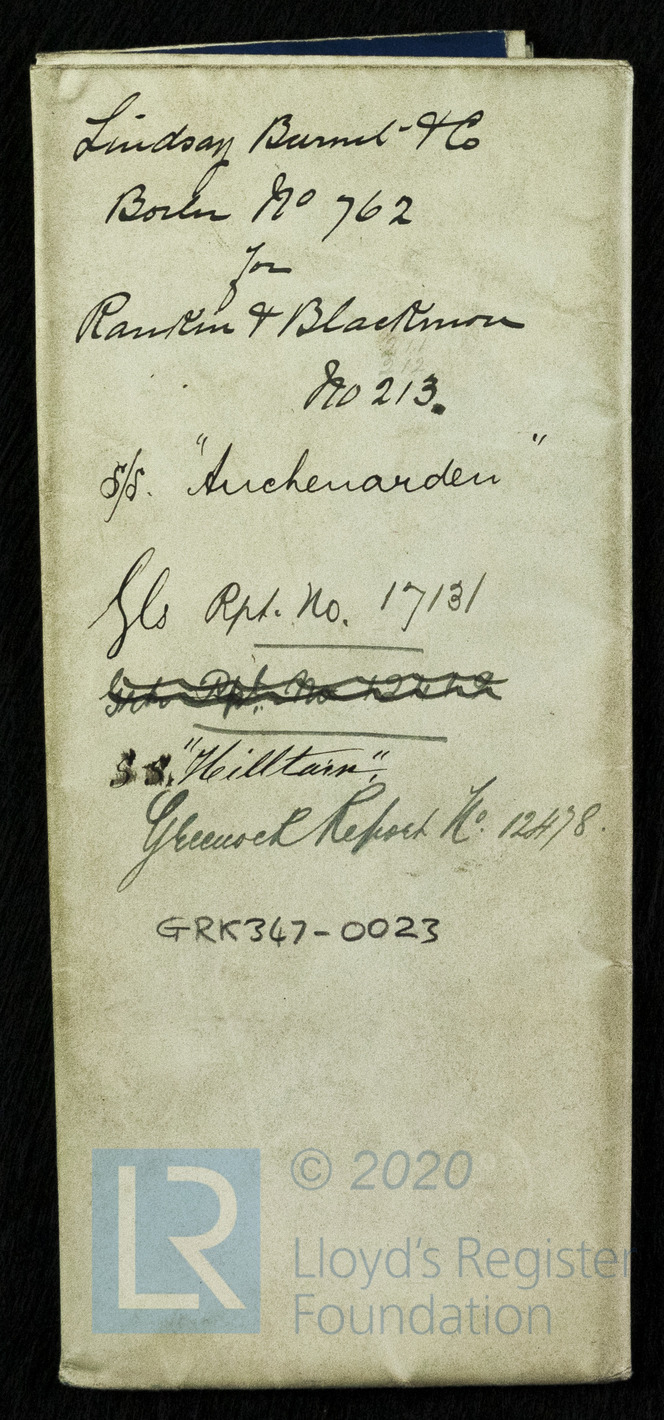 Lindsay Burnet & Co
Boiler No 762
for
Rankin & Blackmore
No 213.
S/S. "Auchenarden"
Gls Rpt. No. 17131
Grk. Rpt. No
S.S. "Hilltarn".
Greenock Report No. 12478.
GRK347-0023
LR
© 2020
Lloyd's Register
Foundation